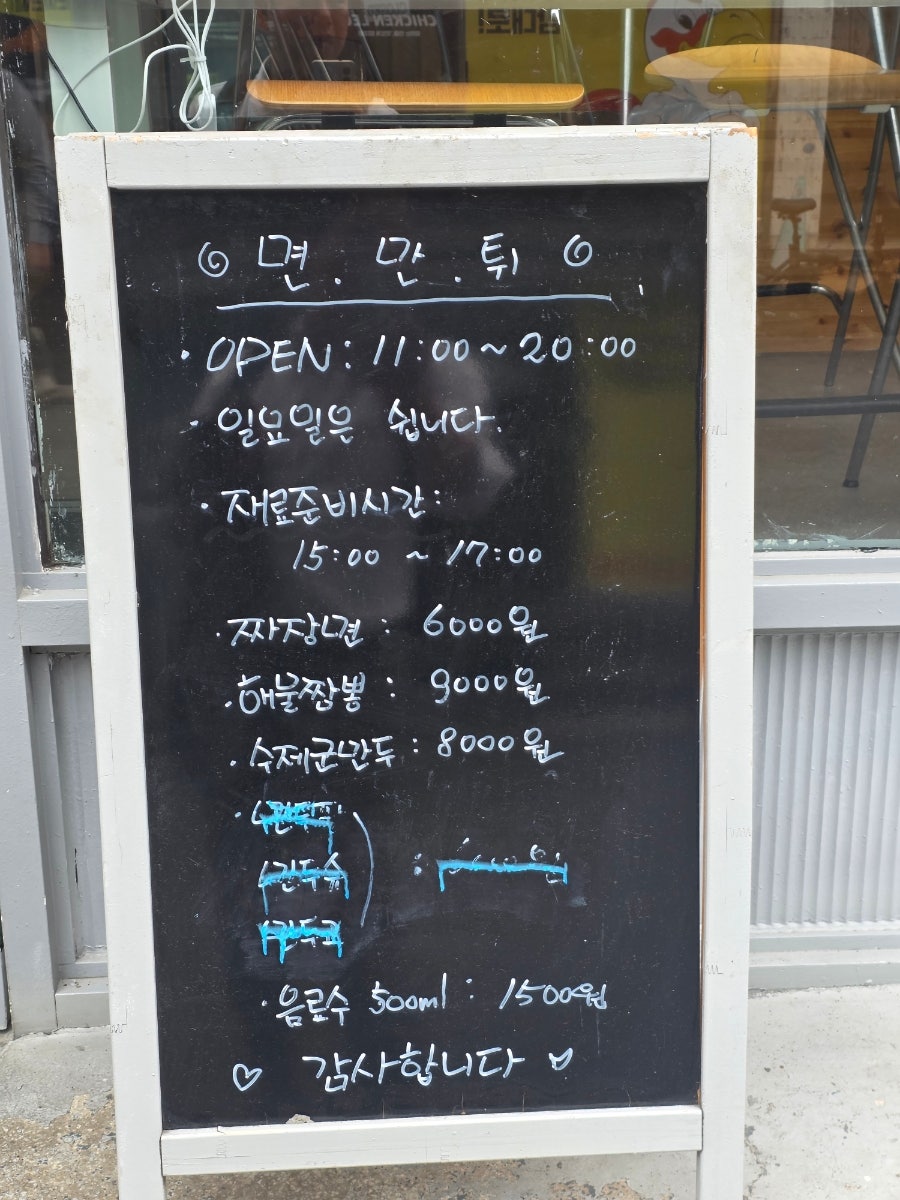 CHICKEN LEG
맘대로!
면.만.튀
OPEN: 11:00~20:00
· 일요일은 쉽니다.
· 재료준비시간:
15:00 ~ 17:00
· 짜장면 : 6000원
· 해물짬뽕 : 9000원
· 수제군만두 : 8000원
· 음료수 500ml : 1500원
♡ 감사합니다 ♡